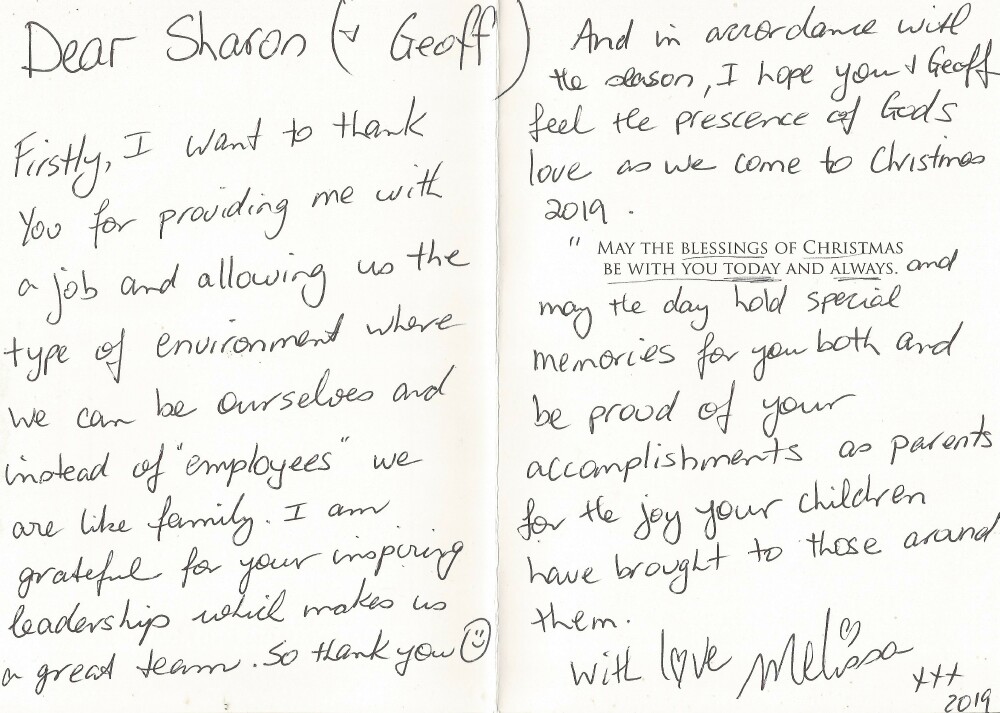 Dear Sharon (+ Geoff)
Firstly, I want to thank
You for providing me with
a job and allowing us the
type of environment where
we can be ourselves and
instead of "employees" we
are like family. I am
grateful for your inspiring
leadership which makes us
a great team. So thank you ☺
And in accordance with
the season, I hope you + Geoff
feel the prescence of God's
love as we come to Christmas
2019.
" MAY THE BLESSINGS OF CHRISTMAS
BE WITH YOU TODAY AND ALWAYS. and
may the day hold special
memories for you both and
be proud of your
accomplishments as parents
for the joy your children
have brought to those around
them.
With love Melissa
xxx
2019